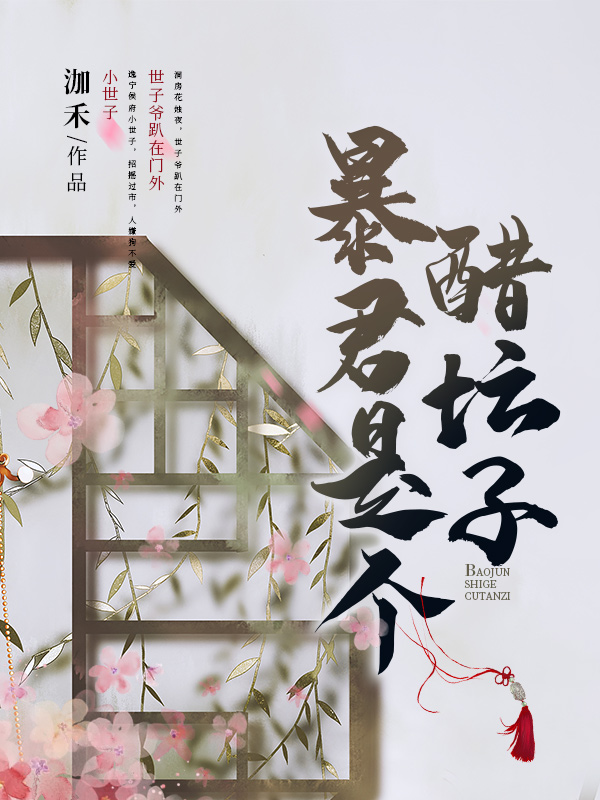 暴君是个
醋坛子
BAOJUN
SHIGE
CUTANZI
泇禾/作品
小世子
逸宁侯府小世子，招摇过市，人嫌狗不爱
世子爷趴在门外
洞房花烛夜，世子爷趴在门外